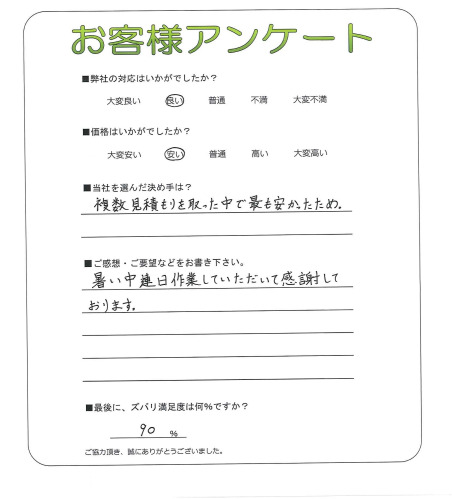 お客様アンケート
■弊社の対応はいかがでしたか？
大変良い 良い 普通 不満 大変不満
■価格はいかがでしたか？
大変安い 安い 普通 高い 大変高い
■当社を選んだ決め手は？
複数見積もりを取った中で最も安かったため。
■ご感想・ご要望などをお書き下さい。
暑い中連日作業していただいて感謝して
おります。
■最後に、ズバリ満足度は何%ですか？
90 %
ご協力頂き、誠にありがとうございました。